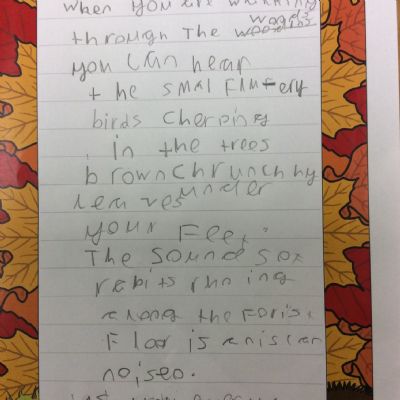 When you are walking
through The woods
you can hear
the smal Flutery
birds Cherping
in the trees
brown chrunchy
leaves under
your Feet.
The sound sof
rabits running
along the Forist
Floor is an
noiseo.